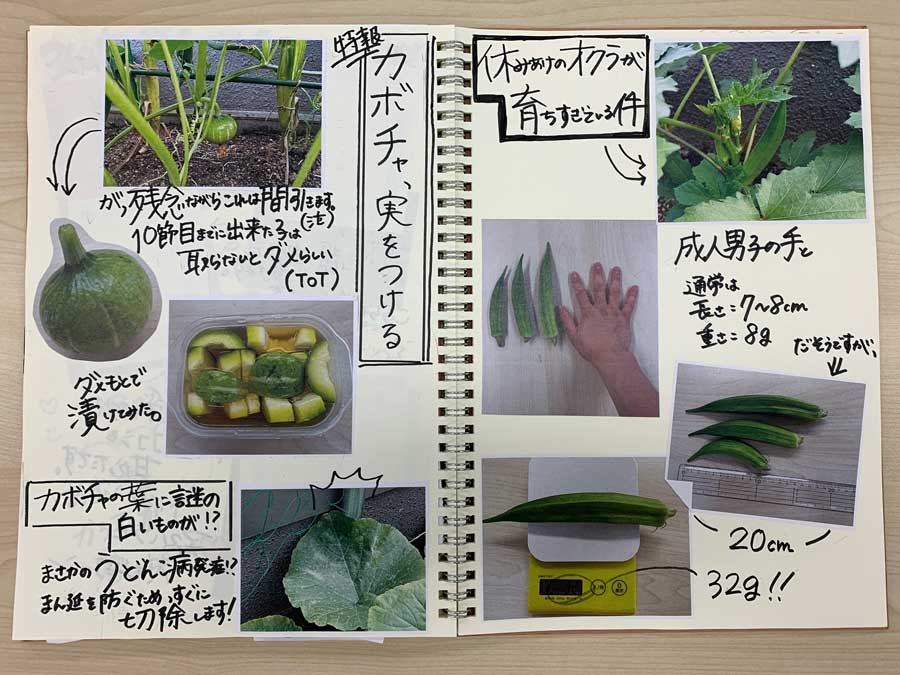 特報
カボチャ、実をつける
が、残念ながらこれは間引きます。
10節目までに出来た子は
取らないとダメらしい
(ToT)
ダメもとで
漬けてみた。
カボチャの葉に謎の
白いものが!?
まさかのうどんこ病発症!?
まん延を防ぐため、すぐに
切除します!
休みあけのオクラが
育ちすぎている件
成人男子の手と
通常は
長さ:7〜8cm
重さ:8g
だそうですが、
20cm
32g!!